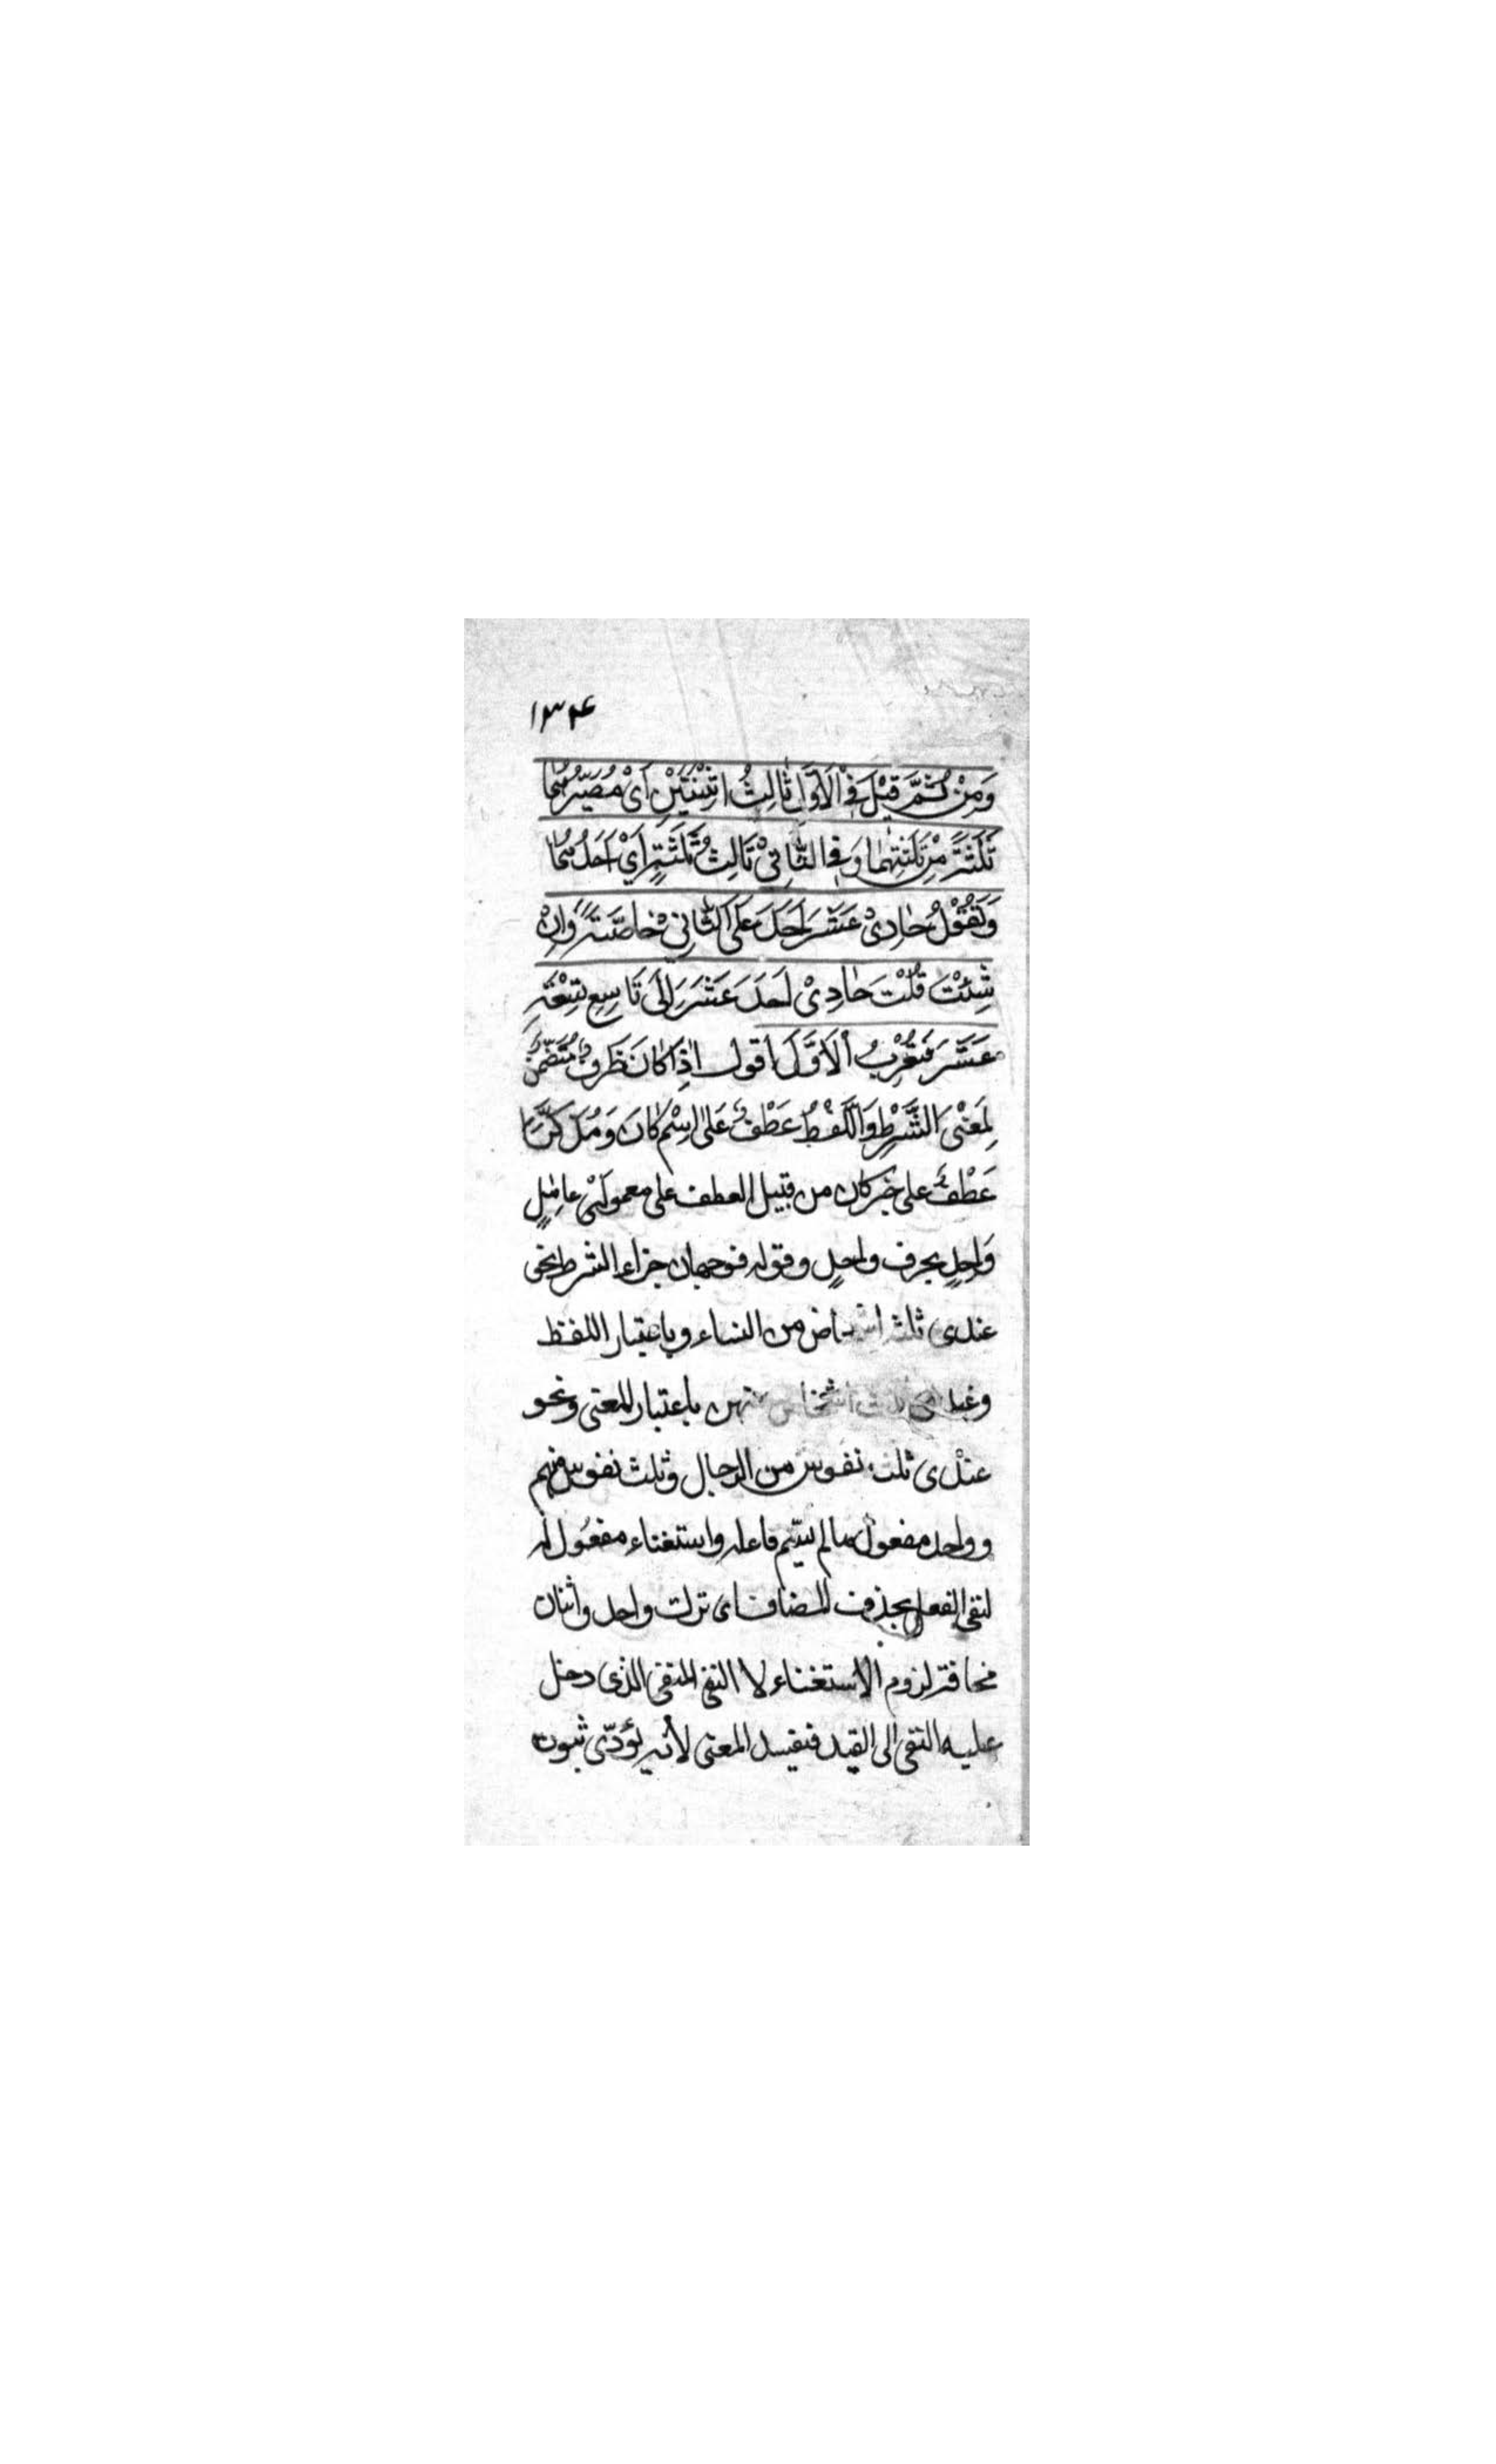 ۱۳۴
وَمِنْ ثُمَّ قِيْلَ فِي الْاَوَّلِ ثَالِثُ اثْنَيْنِ اَيْ مُصَيِّرُهُمَا
ثَلٰثَةً مِنْ ثَلَثْتُهُمَا وَفِي الثَّانِيْ ثَالِثُ ثَلٰثَةٍ اَيْ اَحَدُهُمَا
وَتَقُوْلُ حَادِيْ عَشَرَ اَحَدَ عَلَى الثَّانِيْ خَاصَّةً وَاِنْ
شِئْتَ قُلْتَ حَادِيْ اَحَدَ عَشَرَ اِلٰى تَاسِعِ تِسْعَةَ
عَشَرَ فَتُعْرِبُ الْاَوَّلَ اقول اِذَا كَانَ ظَرفٌ مُتَضَمِّنٌ
لِمَعْنٰى الشَّرْطِ وَاللَّفْظُ عَطْفٌ عَلٰى اِسْمِ كَانَ وَمُذَكَّرًا
عَطْفٌ على خبر كان من قبيل العطف على معمولَىْ عامِلٍ
وَاحِدٍ بحرف واحدٍ وقوله فوجهان جزاء الشرط نحو
عندى ثلثة اشخاص من النساء وباعتبار اللفظ
وعندى ثلث اشخاص منهن باعتبار المعنى ونحو
عندى ثلث نفوس من الرجال وثلث نفوس منهم
وواحد مفعول مالم يسّم فاعله واستغناء مفعول له
لنفى الفعل بحذف المضاف اى ترك واحد واثنان
مخافة لزوم الاستغناء لا النفى المنفى الذى دخل
عليه النفى الى القيد فيفسد المعنى لأنه يؤدّى ثبوت